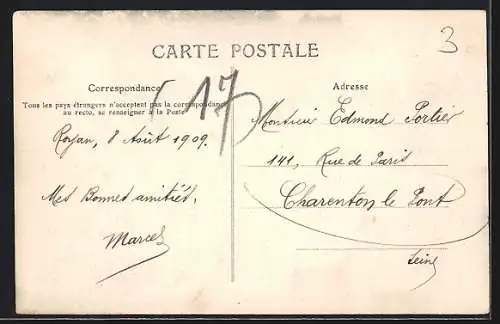 CARTE POSTALE
3
17
Correspondance
Tous les pays étrangers n'acceptent pas la correspondance
au recto, se renseigner à la Poste
Royan, 8 Août 1909.
Mes Bonnes amitiés.
Marcel
Adresse
Monsieur Edmond Portier
141, Rue de Paris
Charenton le Pont
Seine